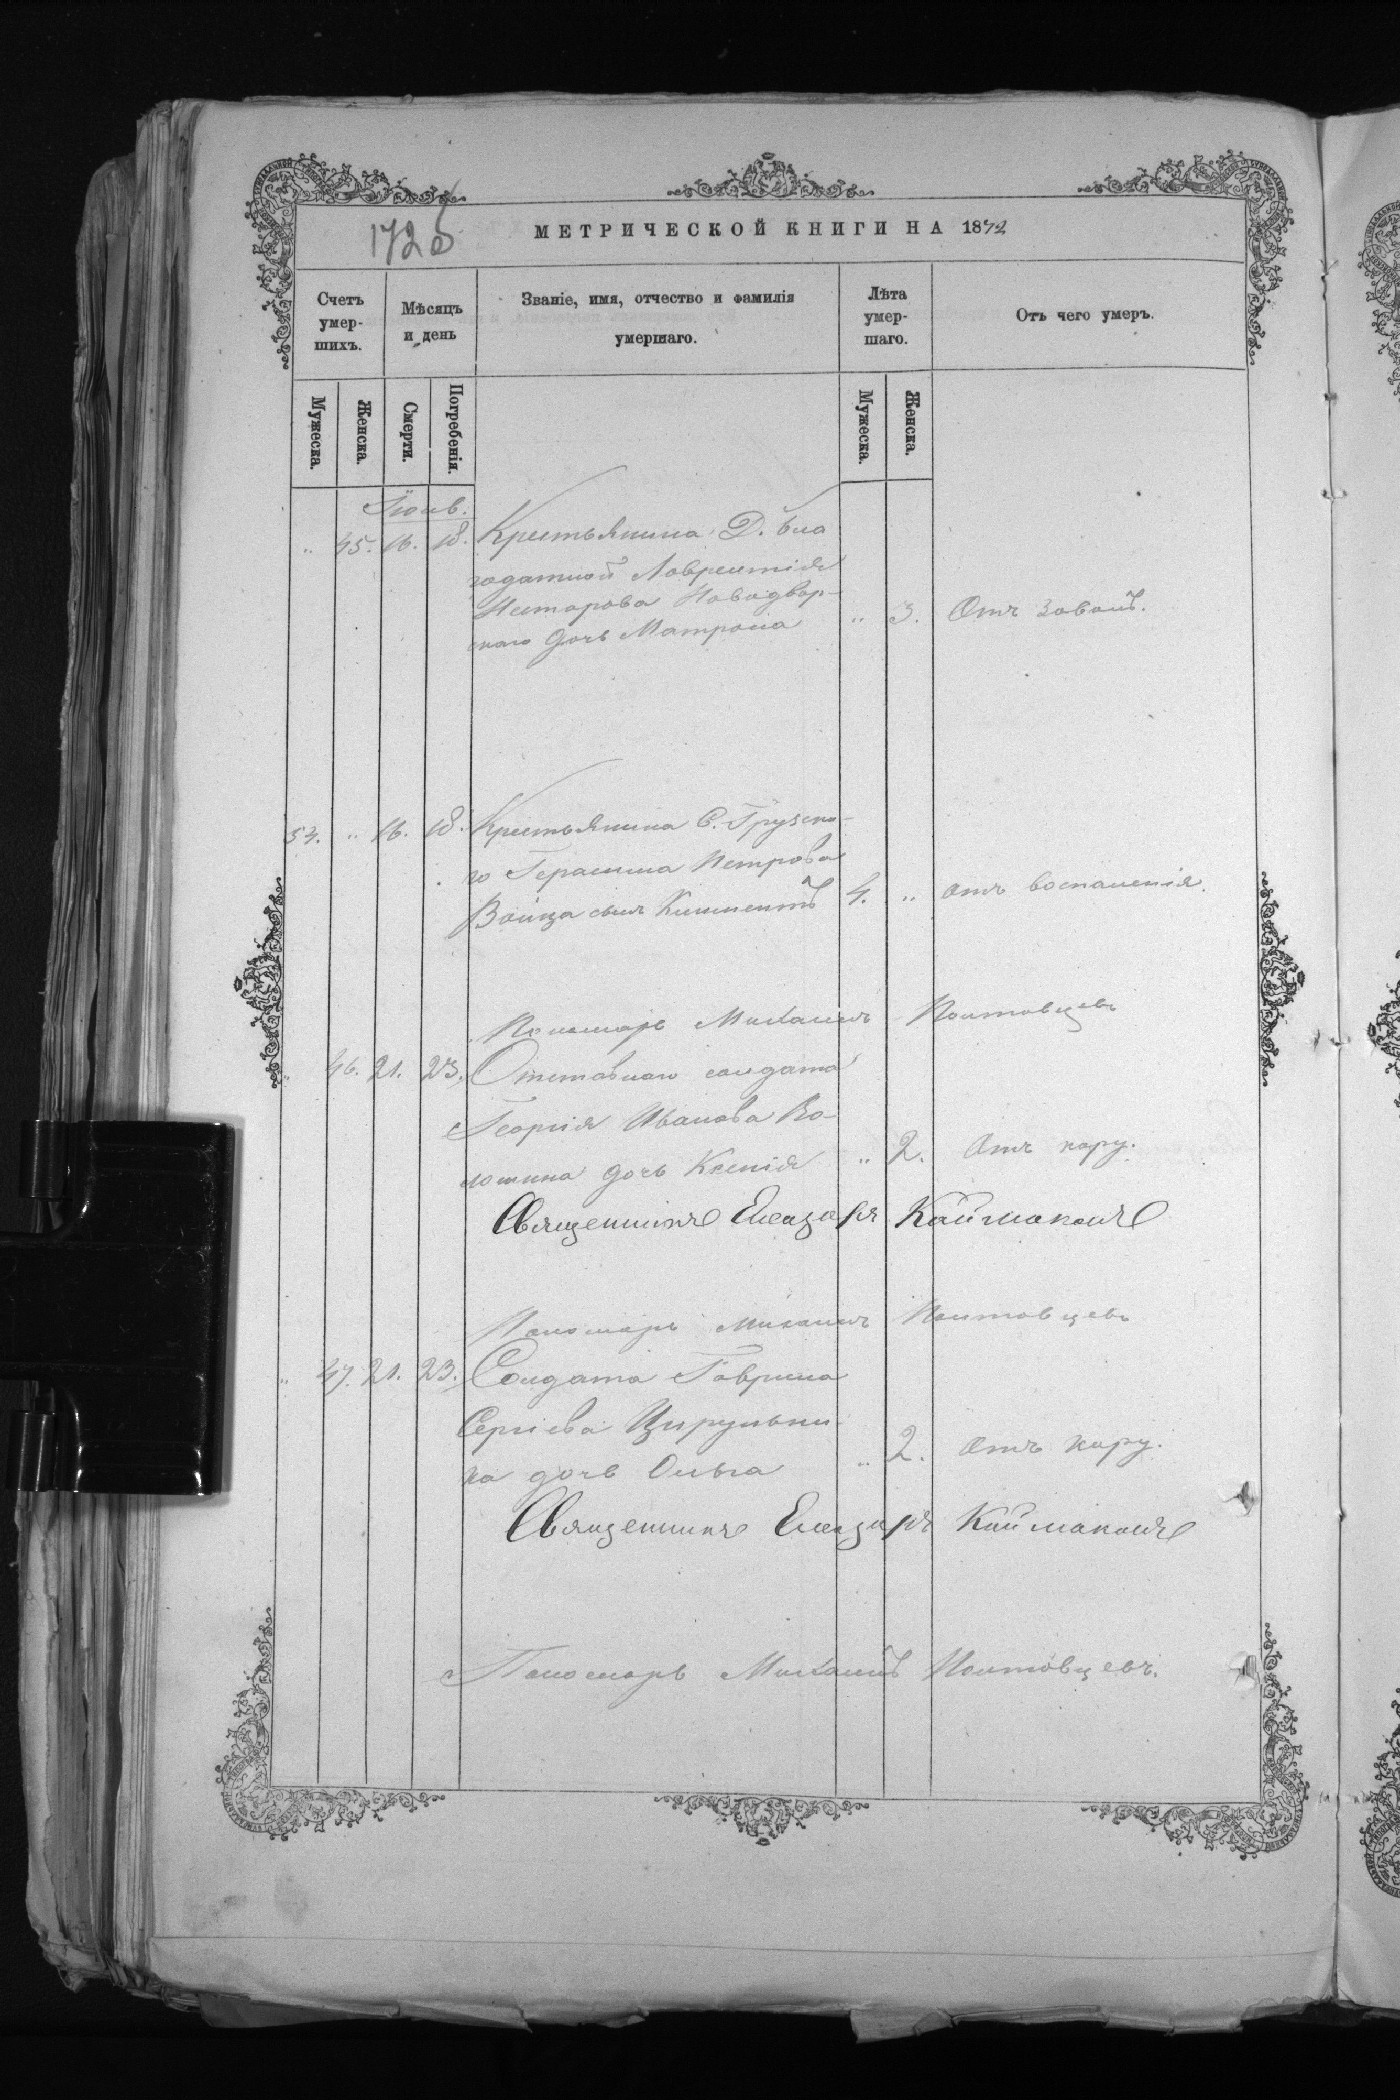 1726
МЕТРИЧЕСКОЙ КНИГИ НА 1872
Счетъ умер-шихъ.
Мѣсяцъ и день
Званіе, имя, отчество и фамилія умершаго.
Лѣта умер-шаго.
Отъ чего умеръ.
Мужеска.
Женска.
Смерти.
Погребенія.
Мужеска.
Женска.
" 45. 16. 18. Крестьянина Д. Бла
годатной Лаврентія
Нестарова Новодвор-
скаго дочь Матрона " 3. Отъ
54. " 16. 18. Крестьянина С. Грузска-
го Герасима Петрова
Войца сынъ Климентъ 4. " отъ воспаленія.
Пономарь Михаилъ Полтовцевъ
" 46. 21. 23. Отставнаго солдата
Георгія Иванова Во-
лошина дочь Ксенія " 2. Отъ кору.
Священникъ Елеазаръ Каймаканъ
Пономарь Михаилъ Полтовцевъ
" 47. 21. 23. Солдата Гаврила
Сергіева Цырульни-
ка дочь Ольга " 2. отъ кору.
Священникъ Елеазаръ Каймаканъ
Пономарь Михаилъ Полтовцевъ.